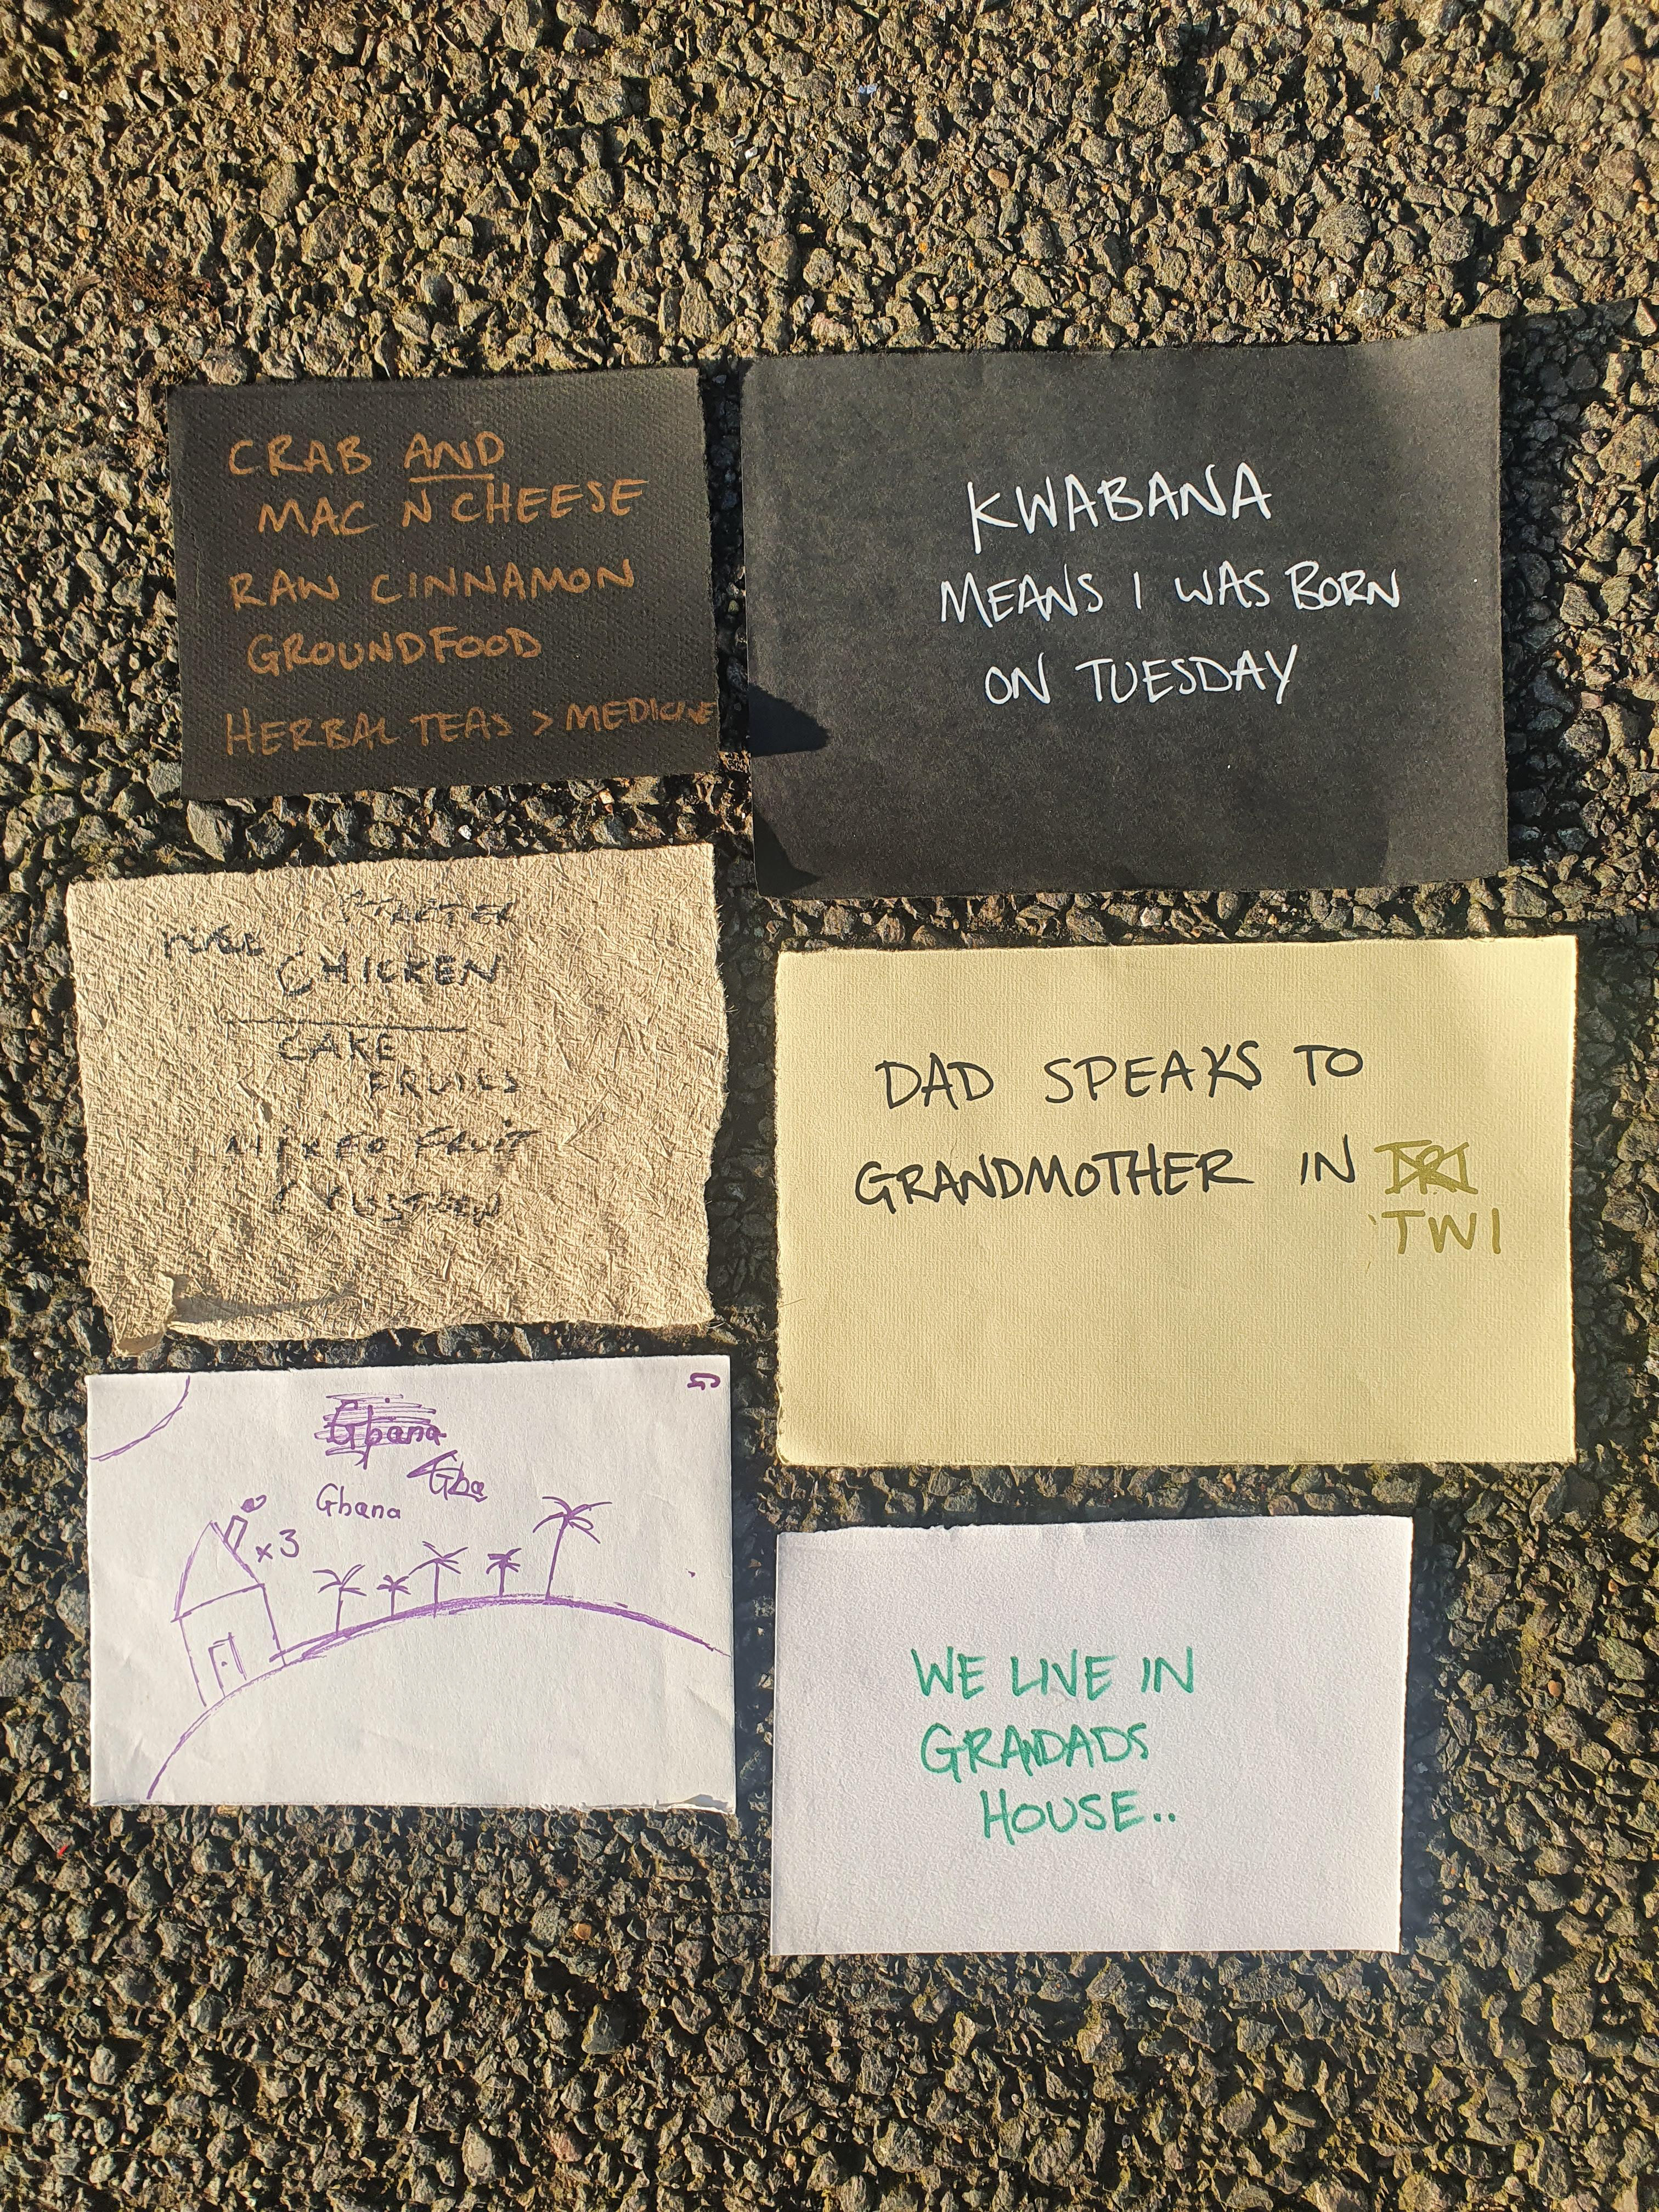 CRAB AND
MAC N CHEESE
RAW CINNAMON
GROUNDFOOD
HERBAL TEAS > MEDICINE
KWABANA
MEANS I WAS BORN
ON TUESDAY
CHICKEN
CAKE
FRUITS
MIXED FRUIT
DAD SPEAKS TO
GRANDMOTHER IN
TWI
Ghana
Gha
Ghana
x3
WE LIVE IN
GRANDADS
HOUSE..